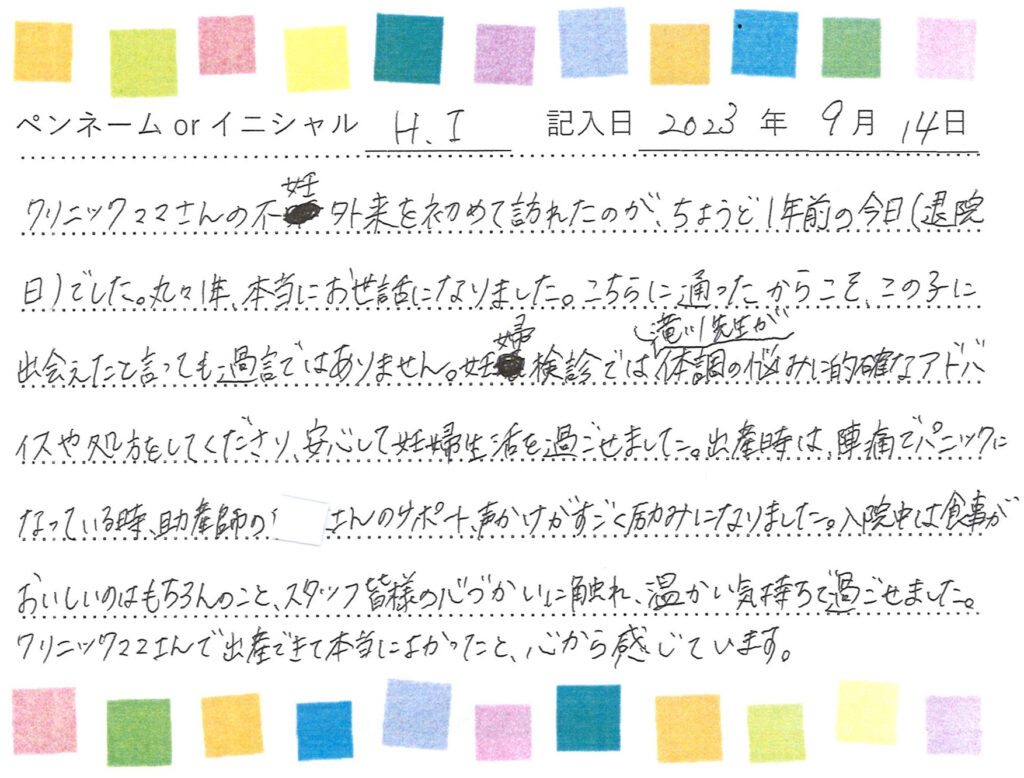 ペンネーム or イニシャル H.I 記入日 2023 年 9月 14日
クリニックママさんの不妊外来を初めて訪れたのが、ちょうど1年前の今日(退院
日)でした。丸々1年、本当にお世話になりました。こちらに通ったからこそ、この子に
出会えたと言っても過言ではありません。妊婦検診では滝川先生が体調の悩みに的確なアドバ
イスや処方をしてくださり、安心して妊婦生活を過ごせました。出産時は、陣痛でパニックに
なっている時、助産師の さんのサポート、声かけがすごく励みになりました。入院中は食事が
おいしいのはもちろんのこと、スタッフ皆様の心づかいに触れ、温かい気持ちで過ごせました。
クリニックママさんで出産できて本当によかったと、心から感じています。